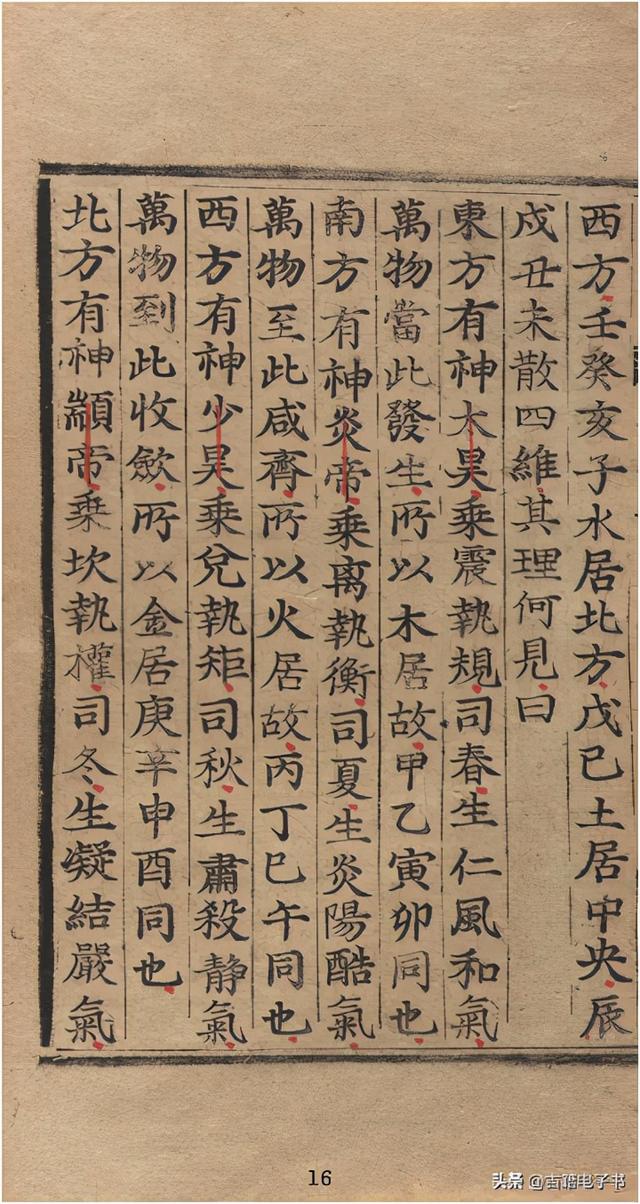 西方壬癸亥子水居北方戊己土居中央辰
戍丑未散四維其理何見曰
東方有神太昊乘震執規司春生仁風和氣
萬物當此發生所以木居故甲乙寅卯同也
南方有神炎帝乘离執衡司夏生炎陽酷氣
萬物至此咸齊所以火居故丙丁巳午同也
西方有神少昊乘兌執矩司秋生肅殺静氣
萬物到此收歛所以金居庚辛申酉同也
北方有神顓帝乘坎執權司冬生凝結嚴氣
16
头条@古籍电子书